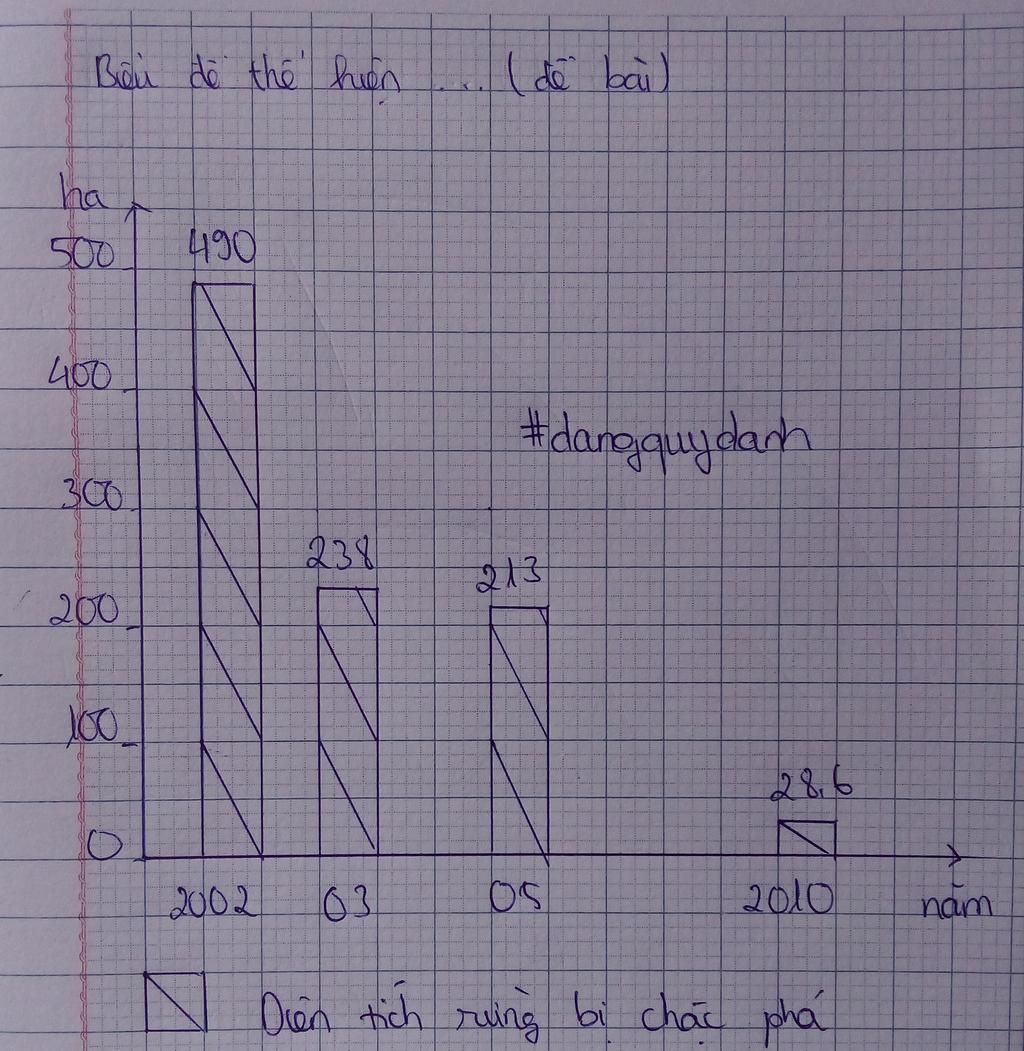 Biểu đồ thể hiện ... (đề bài)
ha
500
490
400
#dangquydanh
300
238
213
200
100
28,6
0
2002 03 05 2010 năm
Diện tích rừng bị chặc phá